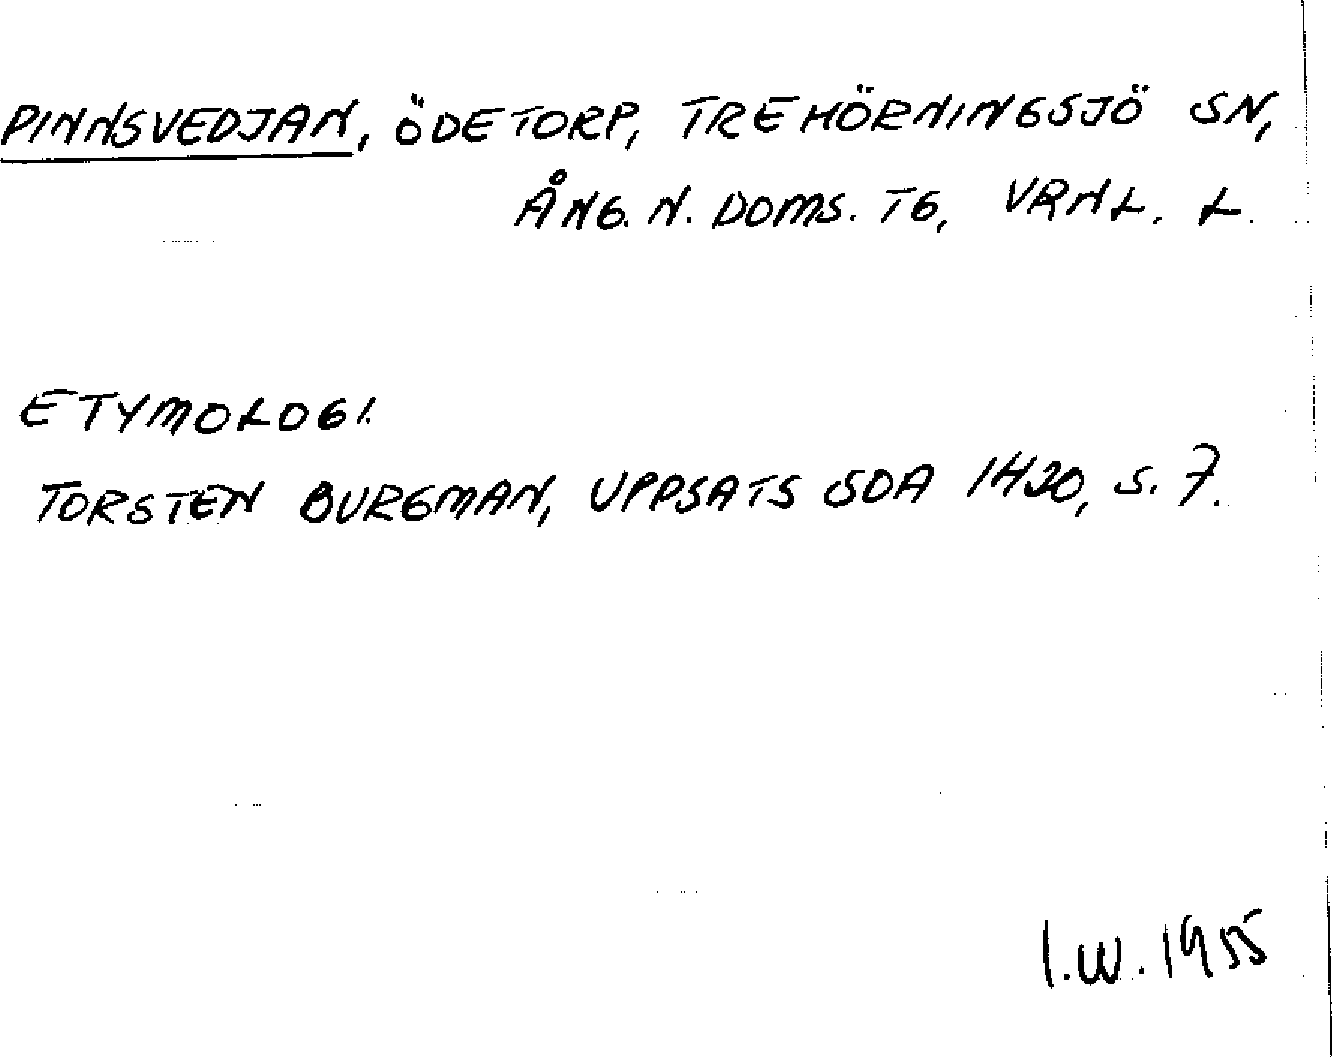 PINNSVEDJAN, ÖDETORP, TREHÖRNINGSJÖ SN,
ÅNG. N. DOMS. TG, VRNL. L.
ETYMOLOGI.
TORSTEN BURGMAN, UPPSATS SOA 1420, S. 7.
I.W. 1955